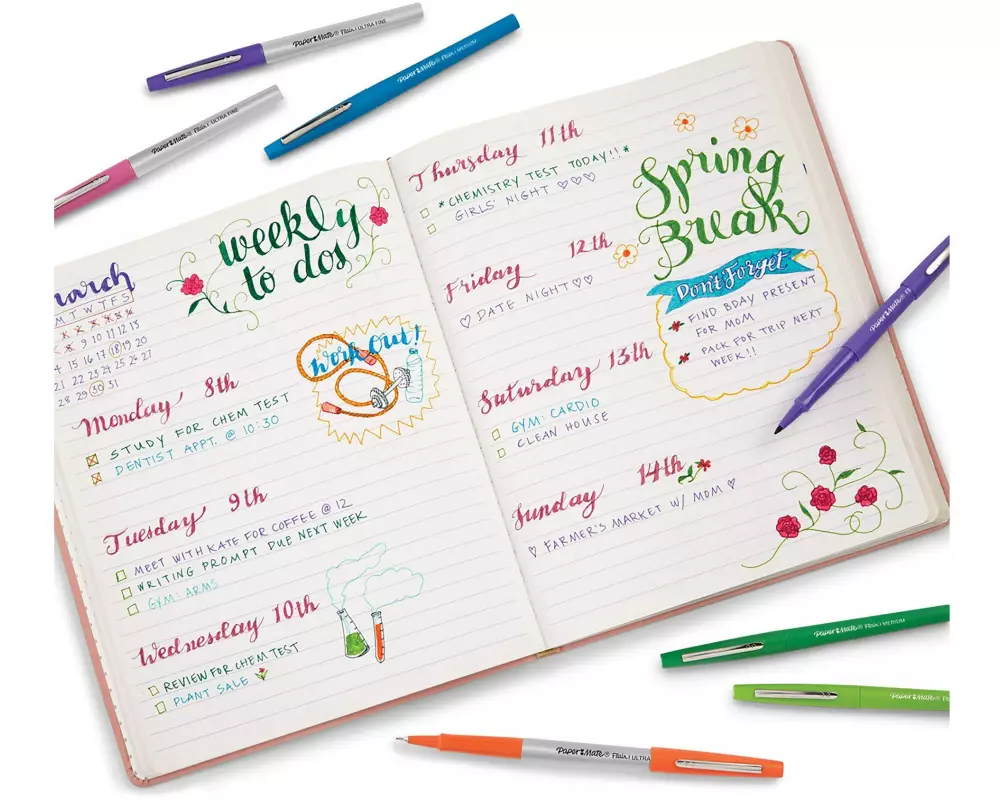 Paper Mate® Flair. | ULTRA FINE
Paper Mate® Flair. | MEDIUM
Paper Mate® Flair. | ULTRA FINE
March
M T W T F S
9 10 11 12 13
14 15 16 17 18 19 20
21 22 23 24 25 26 27
28 29 30 31
weekly
to dos
Monday 8th
STUDY FOR CHEM TEST
DENTIST APPT. @ 10:30
Work Out!
Tuesday 9th
MEET WITH KATE FOR COFFEE @ 12
WRITING PROMPT DUE NEXT WEEK
GYM: ARMS
Wednesday 10th
REVIEW FOR CHEM TEST
PLANT SALE
Thursday 11th
* CHEMISTRY TEST TODAY!! *
GIRLS' NIGHT ♡♡♡
Friday 12th
♡ DATE NIGHT ♡♡
Saturday 13th
GYM: CARDIO
CLEAN HOUSE
Sunday 14th
♡ FARMER'S MARKET W/ MOM ♡
Spring
Break
Don't Forget
FIND BDAY PRESENT
FOR MOM
PACK FOR TRIP NEXT
WEEK!!
Paper Mate® Fl
Paper Mate® Flair. | MEDIUM
Paper Mate® Flair.
Paper Mate® Flair. | ULTRA